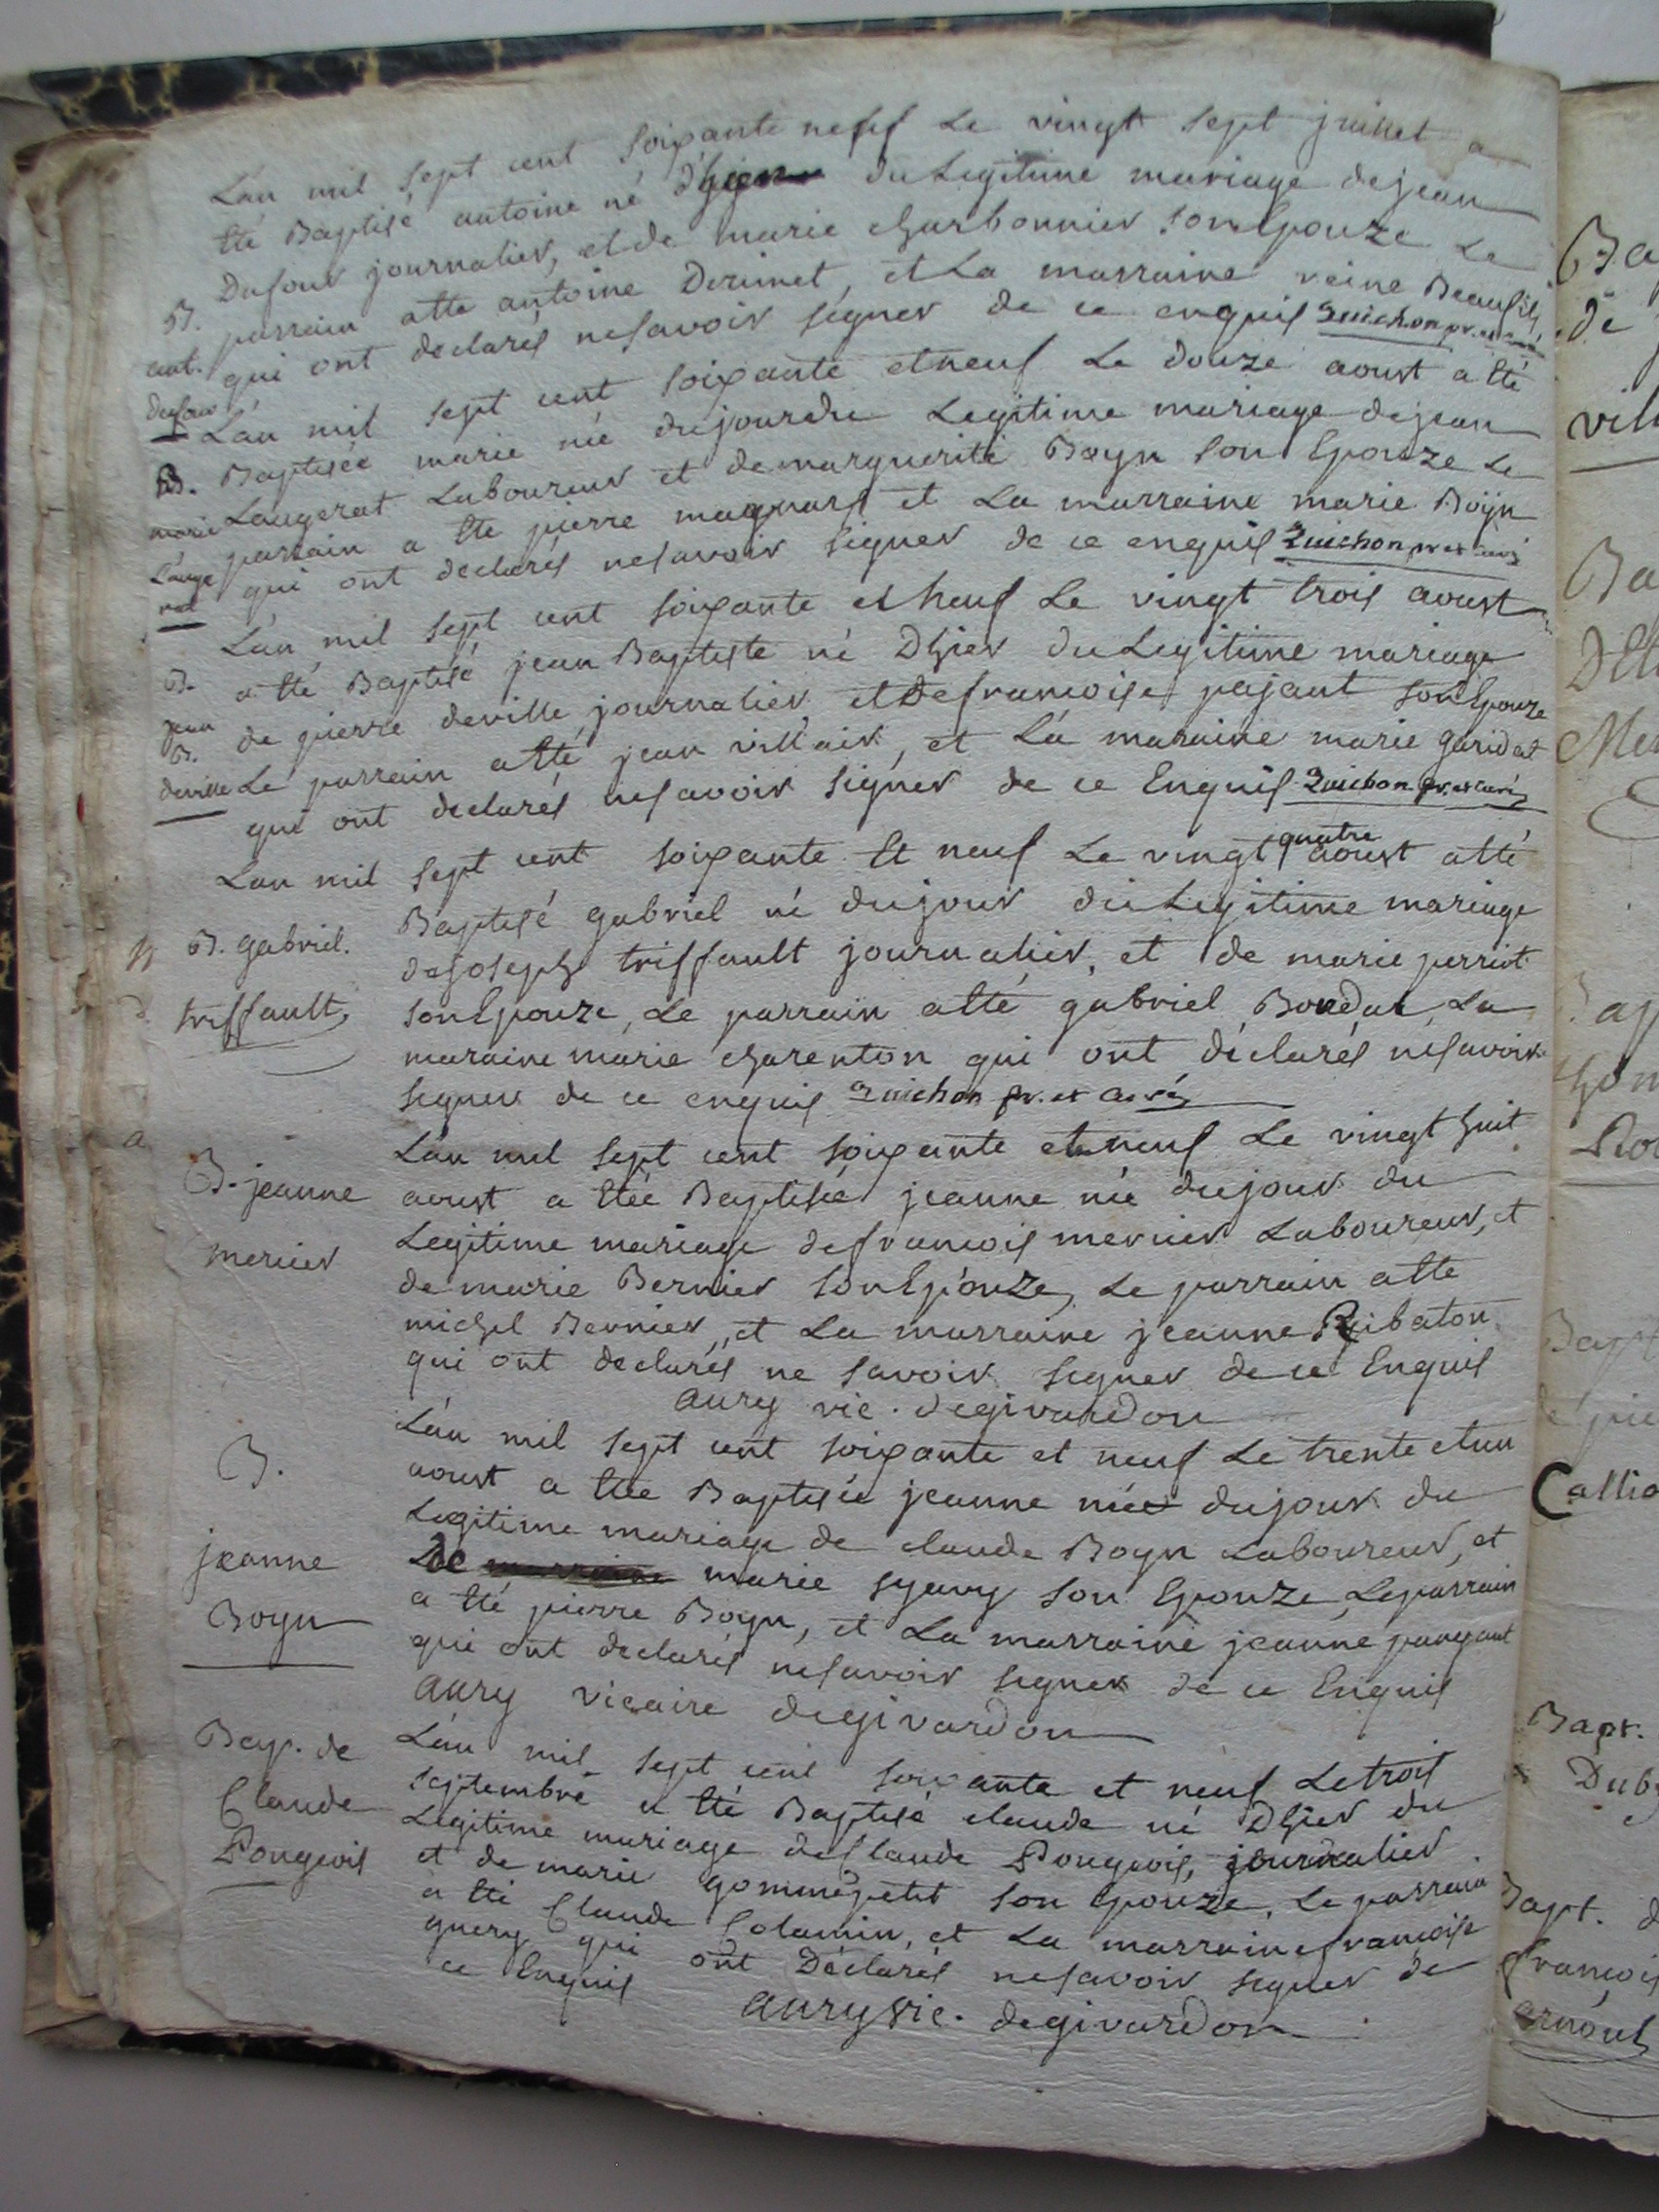 L'an mil sept cent soixante neuf Le vingt sept juillet a
été Baptisé antoine né d'hier du Legitime mariage de jean
Dufour journalier, et de marie charbonnier son Epouze Le
B. parrain atte antoine Derimet, et La marraine reine Beaufils
ant. qui ont declarés ne savoir signer de ce enquis Guichon pr. et curé
dufour
L'an mil sept cent soixante et neuf Le douze aoust a été
B. Baptisée marie née du jour du Legitime mariage de jean
marie Laugerat Laboureur et de marguerite Bogn son Epouze Le
Lauge parrain a éte pierre magnard et La marraine marie Bogn
rat qui ont declarés ne savoir signer de ce enquis Guichon pr et curé
L'an mil sept cent soixante et neuf Le vingt trois aoust
B. a été Baptisé jean Baptiste né D'hier du Legitime mariage
jean de pierre deville journalier et De francoise pajaut son Epouze
B.
deville Le parrain atté jean villair, et La maraine marie garidat
qui ont declarés ne savoir signer de ce Enquis Guichon pr. et curé
quatre
L'an mil sept cent soixante Et neuf Le vingt aoust atté
Baptisé gabriel né du jour du Legitime mariage
B. gabriel.
de joseph triffault journalier, et de marie perriot
triffault
son Epouze, Le parrain atté gabriel Bordat, La
maraine marie charenton qui ont déclarés ne savoir
signer de ce enquis Guichon pr. et curé
L'an mil sept cent soixante et neuf Le vingt huit
B. jeanne
aoust a Etée Baptisée jeanne née du jour du
Legitime mariage de francois mercier Laboureur, et
mercier
de marie Bernier son Epouze, Le parrain atte
michel Bernier, et La marraine jeanne Ribaton
qui ont declarés ne savoir signer de ce Enquis
aury vic. degivardon
L'an mil sept cent soixante et neuf Le trente et un
B.
aoust a Etée Baptisée jeanne née du jour du
Legitime mariage de claude Bogn Laboureur, et
jeanne
De marie syavy son Epouze, Le parrain
Bogn
a Eté pierre Bogn, et La marraine jeanne pangaut
qui ont declarés ne savoir signer de ce Enquis
aury vicaire degivardon
Bap. de
L'an mil sept cent soixante et neuf Le trois
Claude
septembre a Eté Baptisé claude né D'hier du
Pougeois
Legitime mariage de Claude Pougeois, journalier
et de marie gommepetit son Epouze, Le parrain
a Eté Claude Colamin, et La marraine francoise
guery qui ont Déclarés ne savoir signer de
ce Enquis
aury vic. degivardon
de
vill
Ba
Callio
Bapt.
Dub
Bapt. d
francois
arnoul